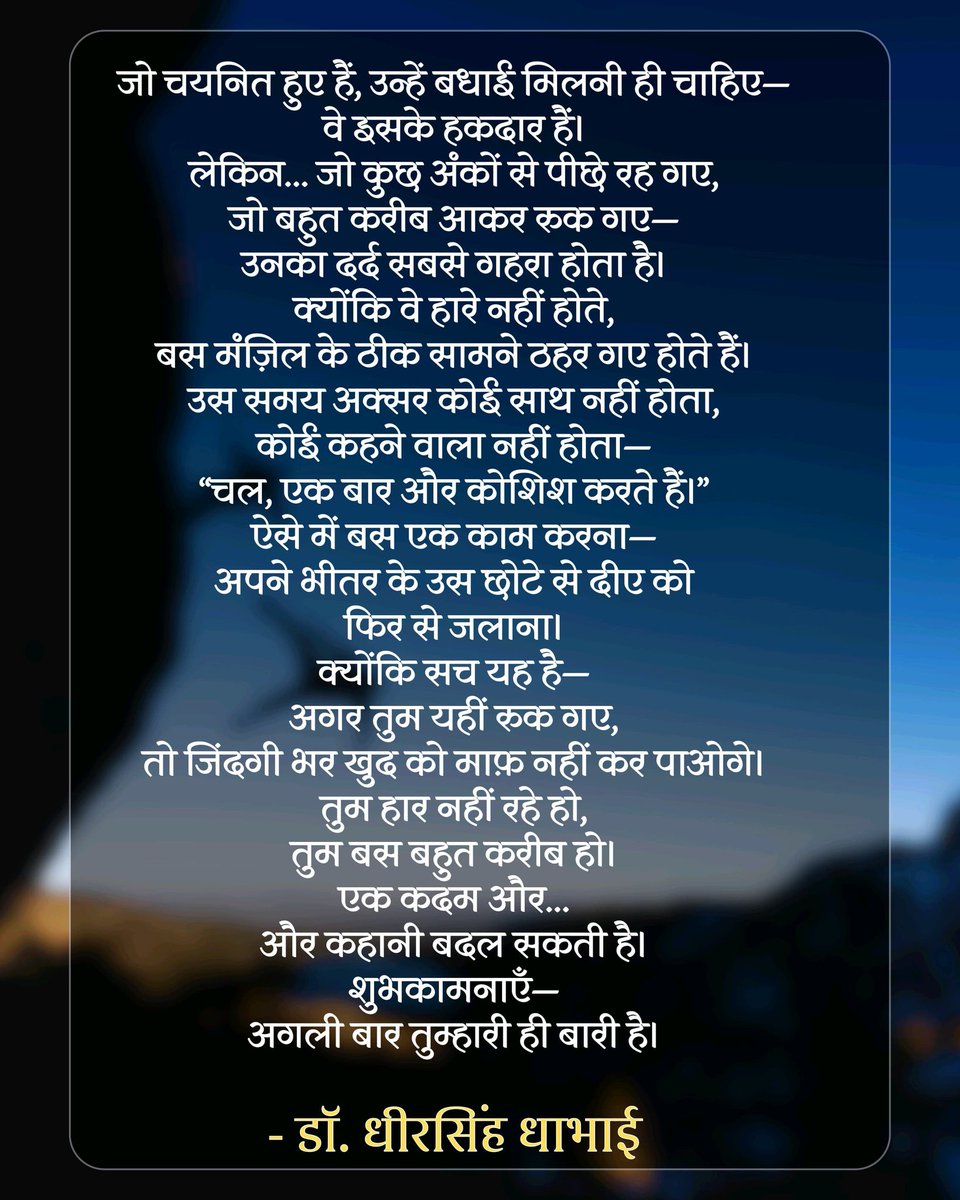 जो चयनित हुए हैं, उन्हें बधाई मिलनी ही चाहिए—
वे इसके हकदार हैं।
लेकिन... जो कुछ अंकों से पीछे रह गए,
जो बहुत करीब आकर रुक गए—
उनका दर्द सबसे गहरा होता है।
क्योंकि वे हारे नहीं होते,
बस मंज़िल के ठीक सामने ठहर गए होते हैं।
उस समय अक्सर कोई साथ नहीं होता,
कोई कहने वाला नहीं होता—
“चल, एक बार और कोशिश करते हैं।”
ऐसे में बस एक काम करना—
अपने भीतर के उस छोटे से दीए को
फिर से जलाना।
क्योंकि सच यह है—
अगर तुम यहीं रुक गए,
तो जिंदगी भर खुद को माफ़ नहीं कर पाओगे।
तुम हार नहीं रहे हो,
तुम बस बहुत करीब हो।
एक कदम और...
और कहानी बदल सकती है।
शुभकामनाएँ—
अगली बार तुम्हारी ही बारी है।
- डॉ. धीरसिंह धाभाई